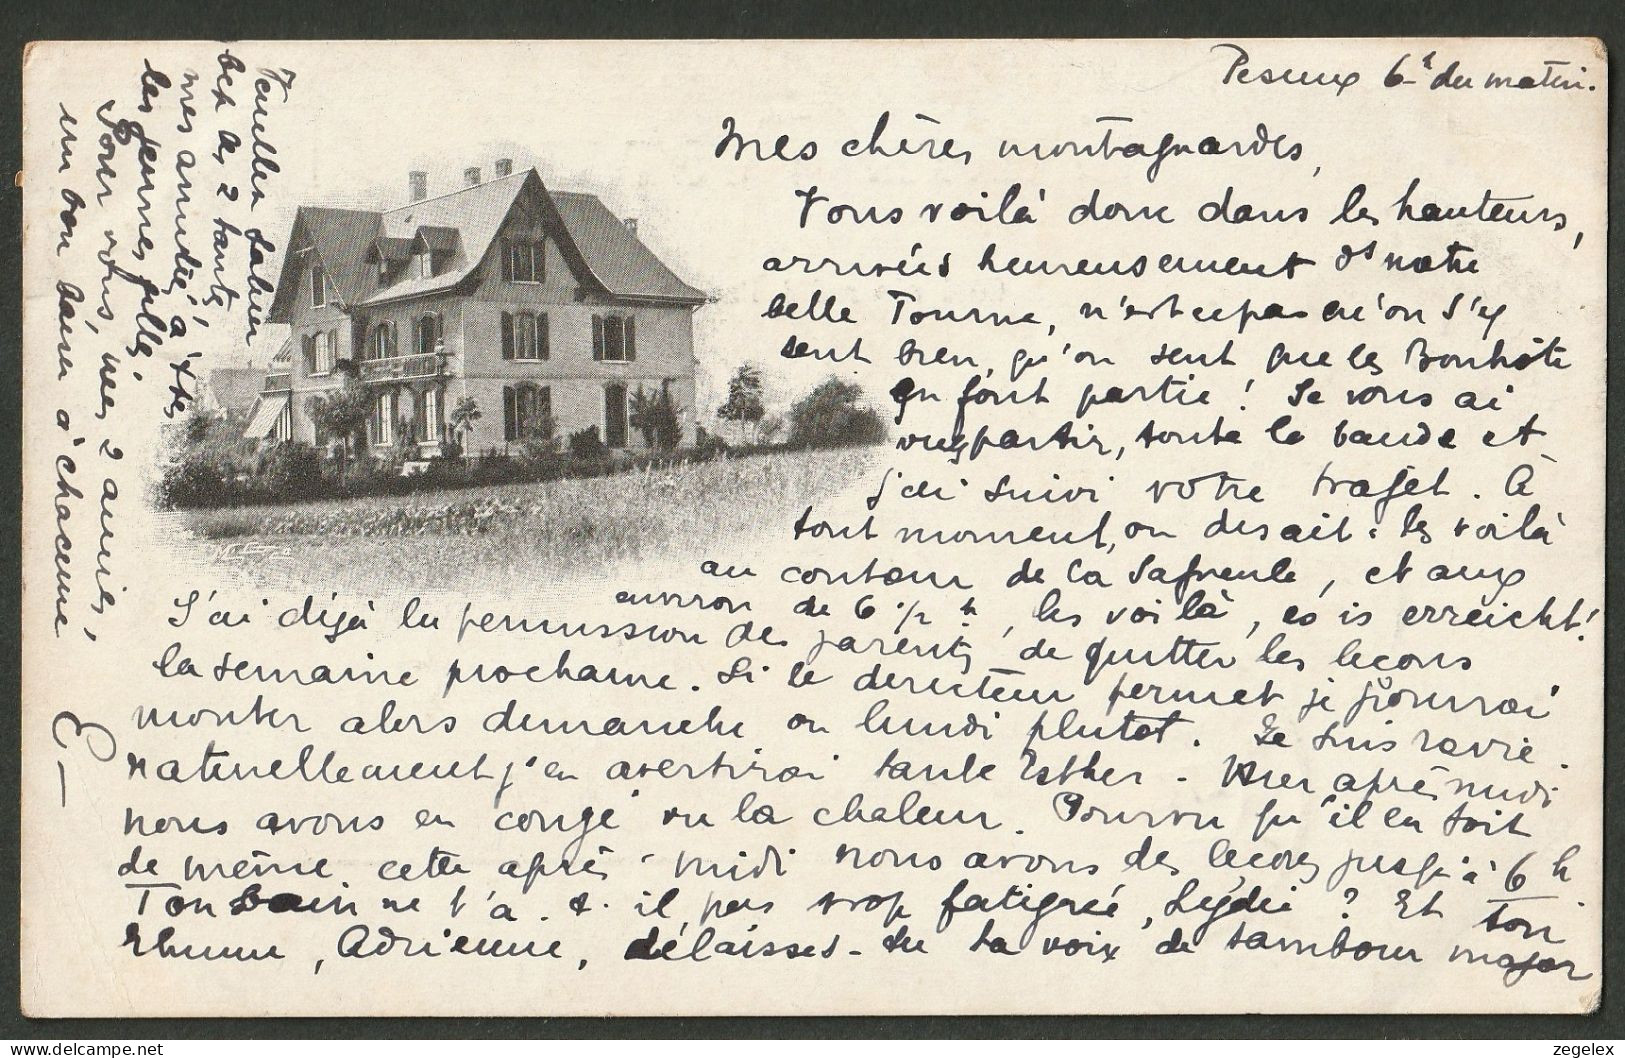 Peseux 6 h du matin.
Mes chères montagnardes,
Vous voilà donc dans les hauteurs,
arrivées heureusement ds notre
belle Tourne, n'est-ce pas qu'on s'y
sent bien, qu'on sent que les Bonhôte
en font partie! Je vous ai
vues partir, toute la bande et
j'ai suivi votre trajet. À
tout moment, on disait: les voilà
au contour de la Safrenle, et aux
environ de 6 1/2 h, les voilà, es is erreicht!
J'ai déjà la permission des parents de quitter les leçons
la semaine prochaine. Si le directeur permet je pourrai
monter alors dimanche ou lundi plutot. Je suis ravie.
naturellement j'en avertirai tante Esther. Hier après midi
nous avons eu congé vu la chaleur. Pourvu qu'il en soit
de même cette après-midi nous avons des leçons jusqu'à 6 h
Ton bain ne t'a-t-il pas trop fatiguée, Lydie? Et ton
rhume, Adrienne, délaisses-tu ta voix de tambour major
Veuillez saluer
les 2 tantes,
mes amitiés à ttes
les jeunes filles
Pour vous, mes 2 amies,
un bon baiser à chacune
E—
zegelex